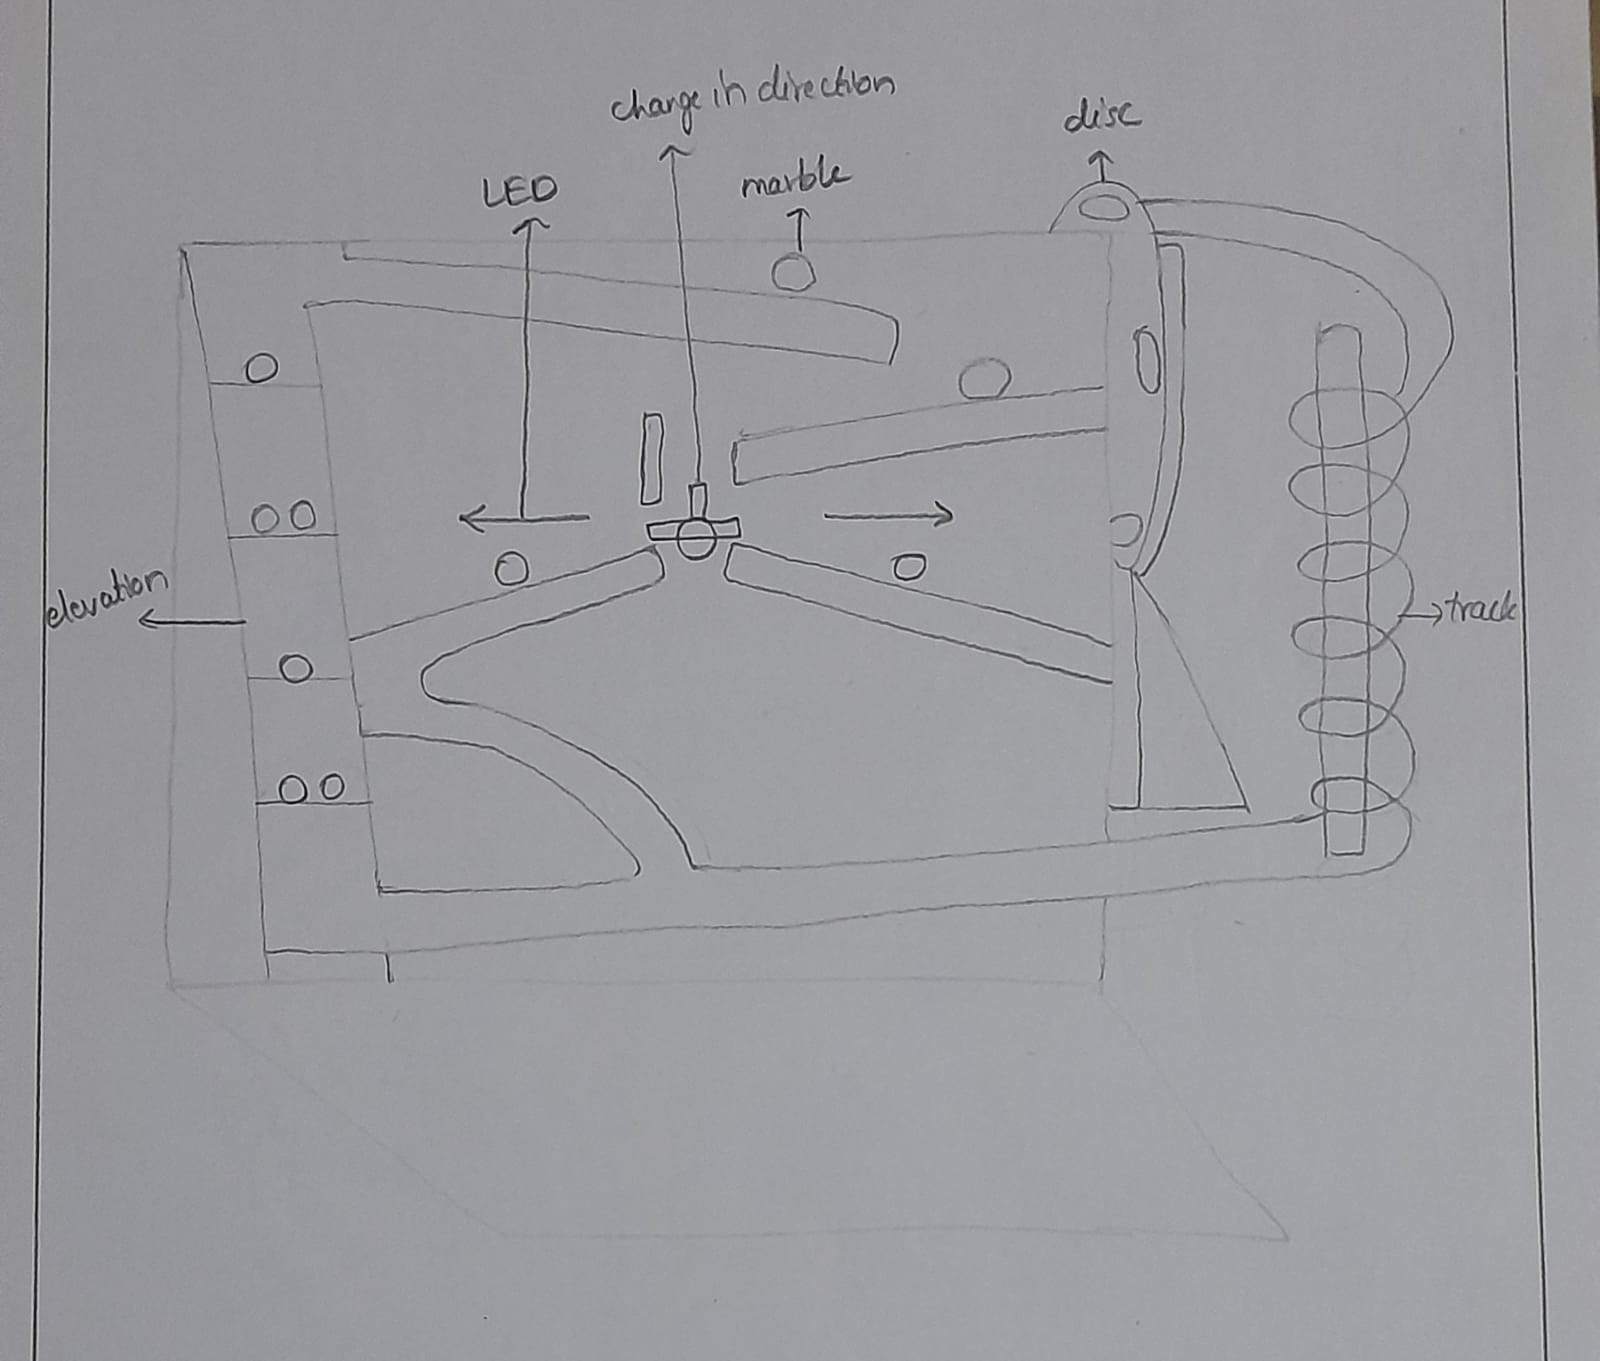 change in direction
disc
LED
marble
elevation
track